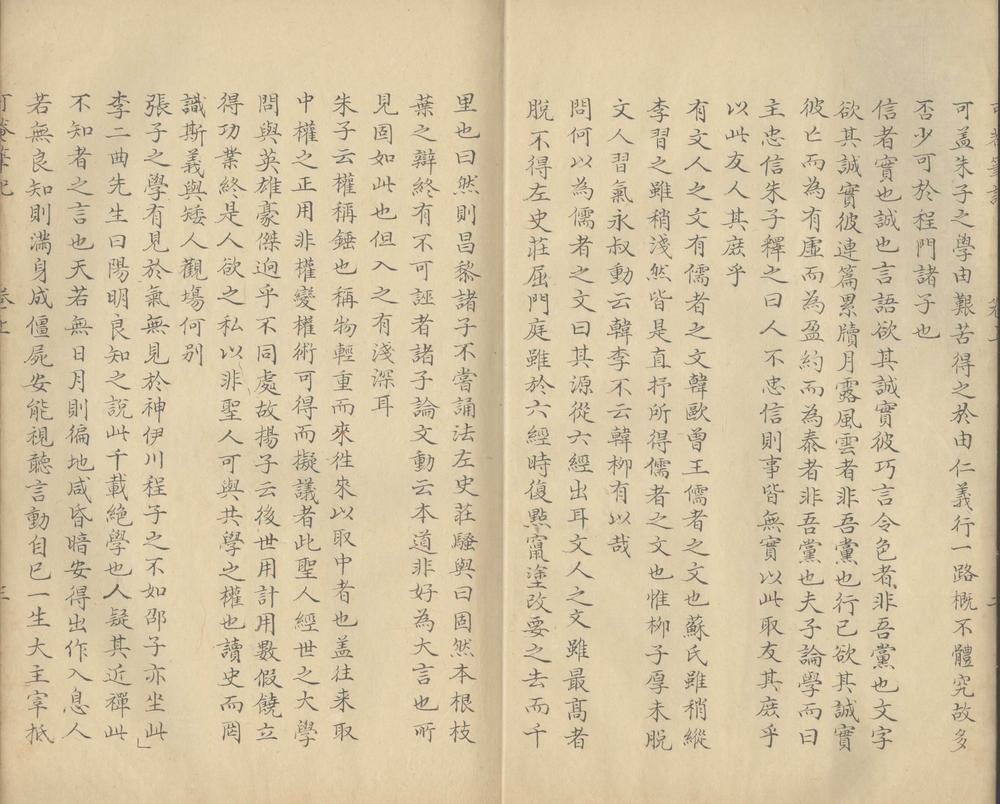 可盖朱子之學由艱苦得之於由仁義行一路概不體究故多
否少可於程門諸子也
信者實也誠也言語欲其誠實彼巧言令色者非吾黨也文字
欲其誠實彼連篇累牘月露風雲者非吾黨也行已欲其誠實
彼亡而為有虛而為盈約而為泰者非吾黨也夫子論學而曰
主忠信朱子釋之曰人不忠信則事皆無實以此取友其庶乎
以此友人其庶乎
有文人之文有儒者之文韓歐曾王儒者之文也蘇氏雖稍縱
李習之雖稍淺然皆是直抒所得儒者之文也惟柳子厚未脫
文人習氣永叔動云韓李不云韓柳有以哉
問何以為儒者之文曰其源從六經出耳文人之文雖最高者
脫不得左史莊屈門庭雖於六經時復點竄塗改要之去而千
里也曰然則昌黎諸子不嘗誦法左史莊騷與曰固然本根枝
葉之辯終有不可誣者諸子論文動云本道非好為大言也所
見固如此也但入之有淺深耳
朱子云權稱錘也稱物輕重而來徃來以取中者也盖往来取
中權之正用非權變權術可得而擬議者此聖人經世之大學
問與英雄豪傑逈乎不同處故揚子云後世用計用數假饒立
得功業終是人欲之私以非聖人可與共學之權也讀史而罔
識斯義與矮人觀塲何别
張子之學有見於氣無見於神伊川程子之不如邵子亦坐此
李二曲先生曰陽明良知之說此千載絶學也人疑其近禪此
不知者之言也天若無日月則徧地咸昏暗安得出作入息人
若無良知則滿身成僵屍安能視聽言動自已一生大主宰抵